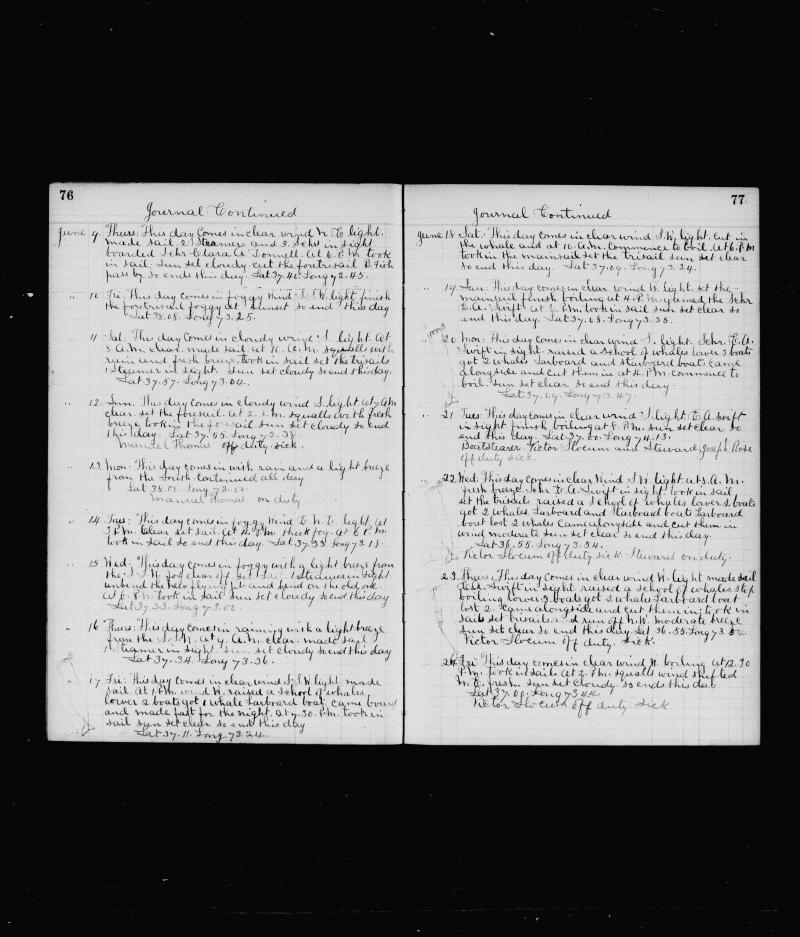 76
Journal Continued
June 9 Thurs: This day comes in clear wind N.E. light.
made sail. 2 Steamers and 3. Schs in sight
boarded Schr Clara A. Donnell. At 6. P.M. took
in sail. sun set cloudy. cut the foretrisail B. Fish
pass by so ends this day. Lat 37.40 Long 72.45.
" 10 Fri: This day comes in foggy wind S.W. light. finish
the foretrisail foggy at sunset so end this day
Lat 38.08. Long 73.25.
" 11 Sat. This day comes in cloudy wind S. light. At
8. A.M. clear. made sail At 10. A.M. squalls with
rain and fresh breeze, took in sail set the trisails
1 Steamer in sight. Sun set cloudy so end this day.
Lat 37.57. Long 73.04.
" 12 Sun. This day comes in cloudy wind S. light. At 7 A.M
clear. set the foresail. At 2. P.M. squalls with fresh
breeze took in the foresail sun set cloudy so end
this day. Lat 37.55. Long 72.38
Manuel Thomas off duty. sick.
" 13 Mon: This day comes in with rain and a light breeze
from the South continued all day
Lat 38.01 Long 72.00
Manuel Thomas on duty
" 14 Tues: This day comes in foggy wind E.N.E. light. At
3 P.M. clear set sail. At 4. P.M. thick fog. At 6 P.M
took in sail so end this day. Lat 37.33 Long 73.18.
" 15 Wed: This day comes in foggy with a light breeze from
the S.W. fog clear off set sail. 1 Steamer in sight
unbend the new flying jib and bend on the old one.
At 6. P.M. took in sail sun set cloudy so end this day
Lat 37.33. Long 73.00.
" 16 Thurs: This day comes in raining with a light breeze
from the S.W. At 9. A.M. clear. made sail
1 Steamer in sight sun set cloudy so end this day
Lat 37.34. Long 73.36.
" 17 Fri: This day comes in clear wind S.S.W. light. made
sail. At 1. P.M. wind W. raised a school of whales
lower 2 boats got 1 whale Larboard boat. came board
and made fast for the night. At 7.30. P.M. took in
sail sun set clear so end this day
Lat 37.11. Long 73.24.
77
Journal Continued
June 18 Sat. This day comes in clear wind S.W. light. cut in
the whale and at 10. A.M. commence to boil. At 6. P.M
took in the mainsail set the trisail sun set clear
so end this day. Lat 37.09. Long 73.24.
" 19 Sun. This day comes in clear wind W. light. set the
mainsail finish boiling at 4. P.M. gamed the Schr
E.A. Swift at 6. P.M. took in sail sun set clear so
end this day. Lat 37.08. Long 73.35.
20 Mon: This day comes in clear wind S. light. Schr. E.A.
Swift in sight. raised a school of whales lower 3 boats
got 2 whales Larboard and starboard boats came
alongside and cut them in at 4. P.M. commence to
boil. sun set clear so end this day
Lat 37.09. Long 73.47.
" 21 Tues This day comes in clear wind S. light. E.A. Swift
in sight finish boiling at 8. P.M. sun set clear so
end this day. Lat 37.00. Long 74.13.
Boatsteerer Victor Slocum and Steward, Joseph Rose
off duty sick.
22 Wed: This day comes in clear wind S.W. light. at 8. A.M.
fresh breeze. Schr E.A. Swift in sight. took in sail
set the trisails raised a school of whales lower 2 boats
got 2 whales. Larboard and Starboard boats Larboard
boat lost 2 whales came alongside and cut them in
wind moderate sun set clear so end this day.
Lat 36.55. Long 73.54.
Victor Slocum off duty sick. Steward on duty.
23. Thurs: This day comes in clear wind W. light made sail
Schr. Swift in sight raised a school of whales stop
boiling lower 3 boats got 2 whales Larboard boat
lost 2. came alongside and cut them in; took in
sails set trisails & run off N.W. moderate breeze
sun set clear so end this day. Lat 36.55. Long 73.54
Victor Slocum off duty. sick.
24. Fri: This day comes in clear wind W. boiling. At 12.30
P.M. took in sails at 2. P.M. squalls wind shifted
N.E. fresh. sun set cloudy. so ends this day
Lat 37.00. Long 73.44
Victor Slocum off duty. sick